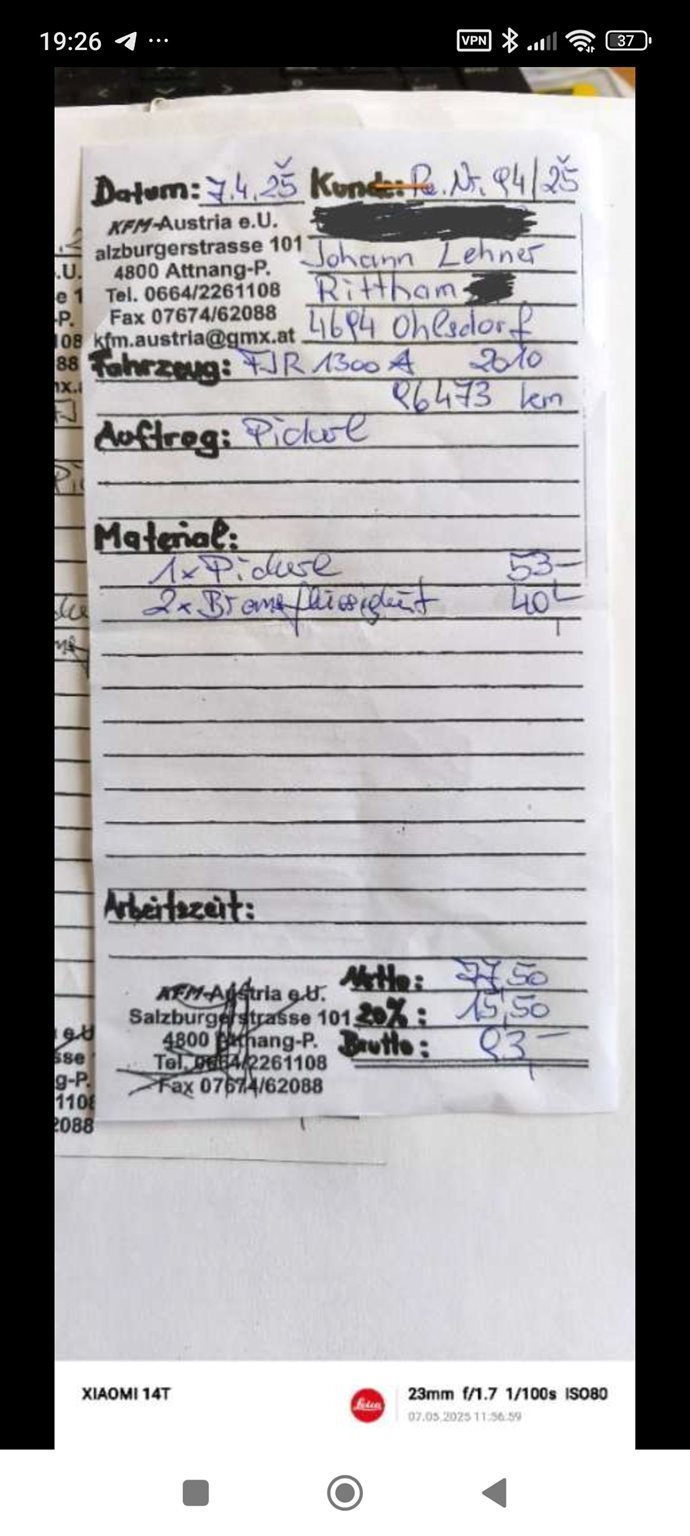 19:26 ... VPN 37
Datum: 7.4.25 Kunde: Re. Nr. 94/25
KFM-Austria e.U.
alzburgerstrasse 101
4800 Attnang-P.
Tel. 0664/2261108
Fax 07674/62088
kfm.austria@gmx.at
Johann Lehner
Rittham
4694 Ohlsdorf
Fahrzeug: FJR 1300 A 2010
96473 km
Auftrag: Pickerl
Material:
1x Pickerl 53-
2x Bremsflüssigkeit 40-
Arbeitszeit:
KFM-Austria e.U.
Salzburgerstrasse 101
4800 Attnang-P.
Tel. 0664/2261108
Fax 07674/62088
Netto: 77,50
20%: 15,50
Brutto: 93-
.U.
e 1
-P.
08
88
e.U
sse
g-P.
1108
2088
XIAOMI 14T
Leica
23mm f/1.7 1/100s ISO80
07.05.2025 11:56:59